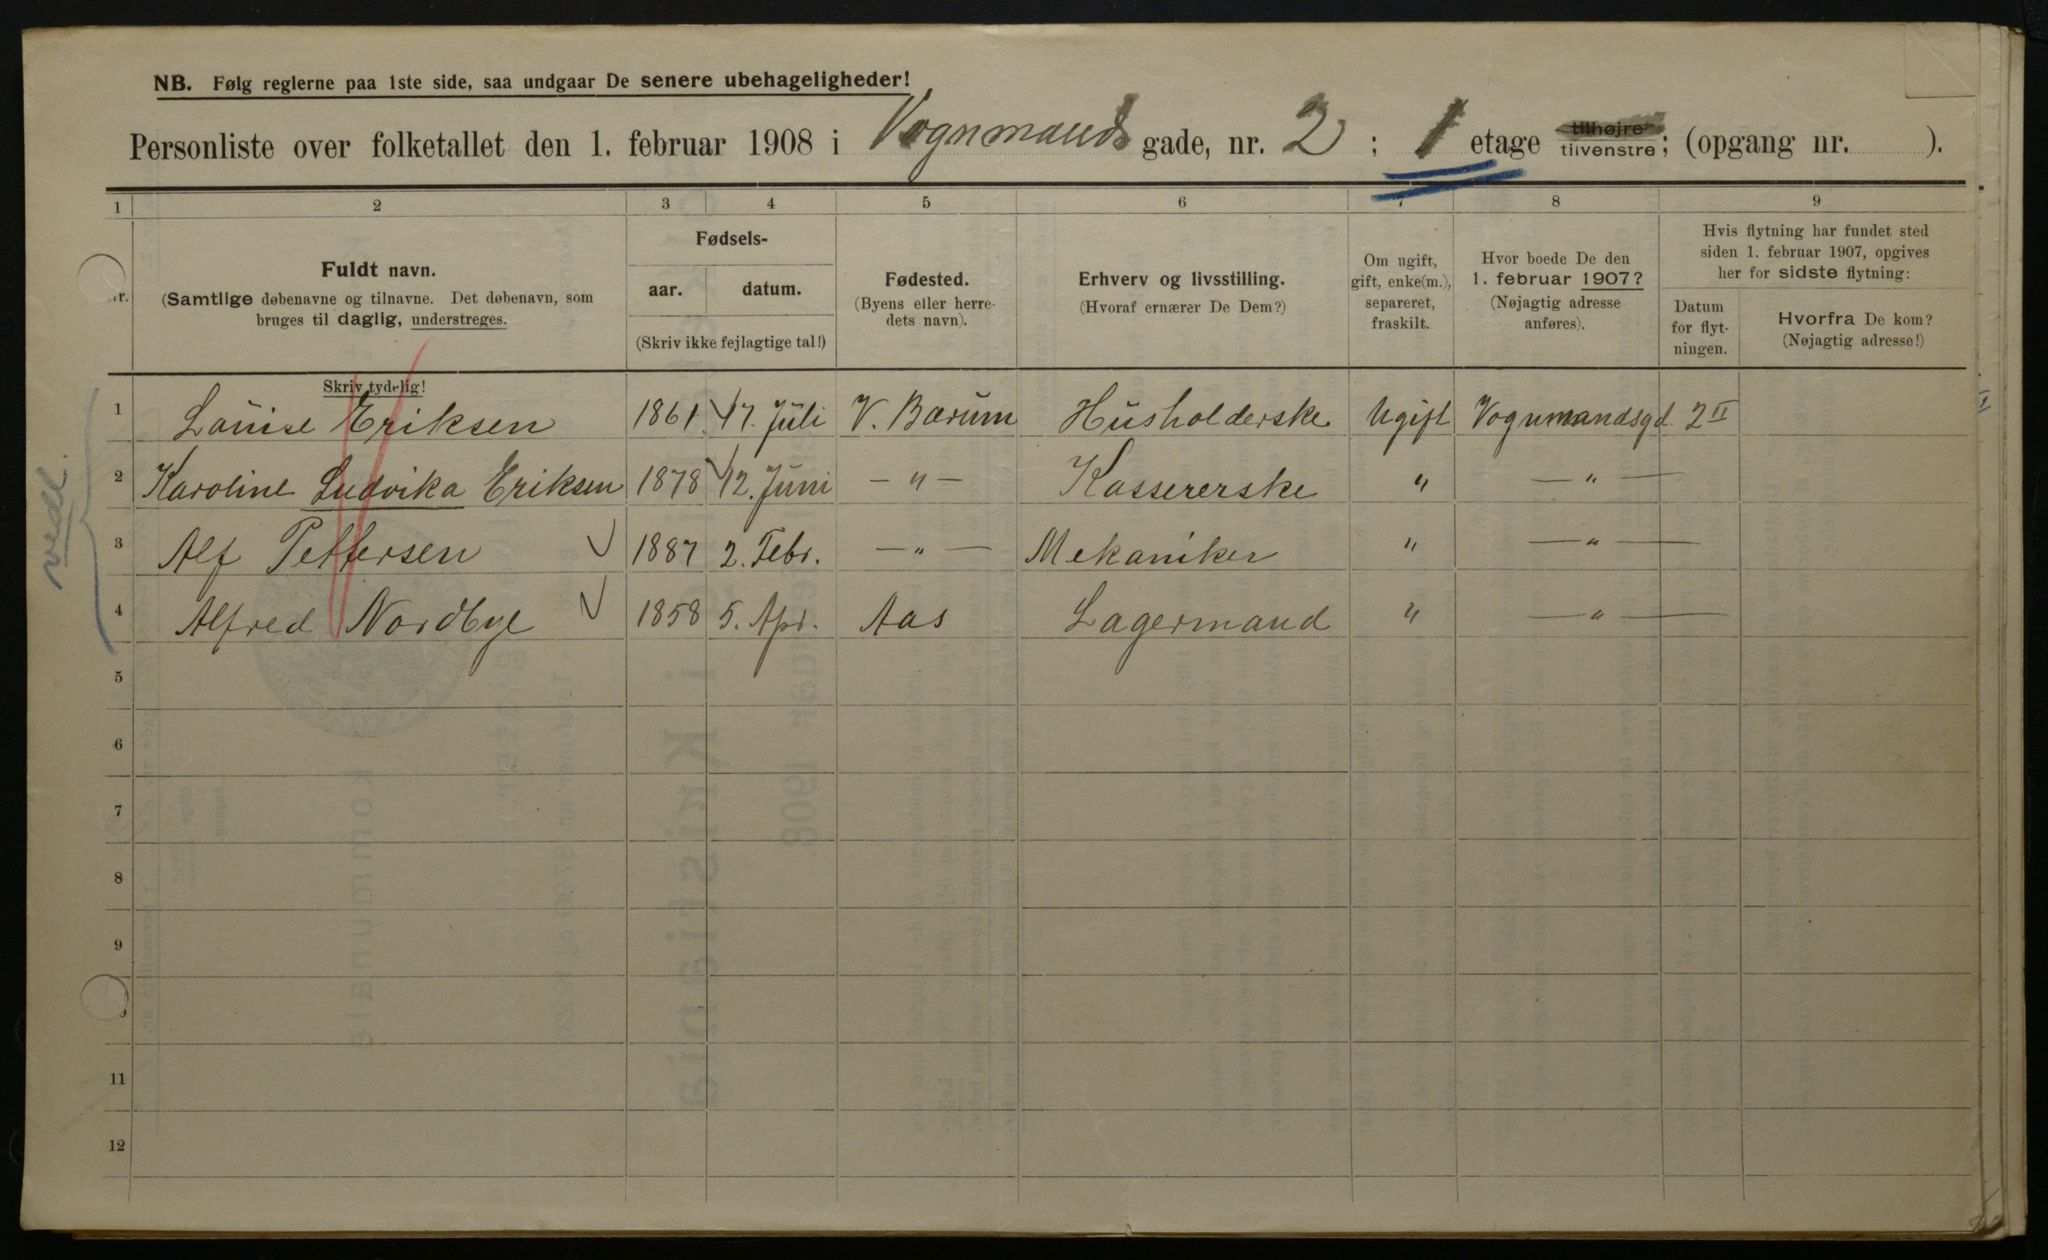 NB. Følg reglerne paa 1ste side, saa undgaar De senere ubehageligheder!
Personliste over folketallet den 1. februar 1908 i Vognmands gade, nr. 2 ; 1 etage tilhøjre tilvenstre; (opgang nr. ).
1 2 3 4 5 6 7 8 9
nr.
Fuldt navn.
(Samtlige døbenavne og tilnavne. Det døbenavn, som
bruges til daglig, understreges.
Skriv tydelig!
Fødsels-
aar. datum.
(Skriv ikke fejlagtige tal!)
Fødested.
(Byens eller herre-
dets navn).
Erhverv og livsstilling.
(Hvoraf ernærer De Dem?)
Om ugift,
gift, enke(m.),
separeret,
fraskilt.
Hvor boede De den
1. februar 1907?
(Nøjagtig adresse
anføres).
Hvis flytning har fundet sted
siden 1. februar 1907, opgives
her for sidste flytning:
Datum
for flyt-
ningen.
Hvorfra De kom?
(Nøjagtig adresse!)
1 Louise Eriksen 1861 17. Juli V. Bærum Husholderske Ugift Vognmandsgd. 2 II
2 Karoline Ludvika Eriksen 1878 12. Juni — " — Kassererske " — " —
3 Alf Pettersen 1887 2. Febr. — " — Mekaniker " — " —
4 Alfred Nordbye 1858 5. Apr. Aas Lagermand " — " —
5
6
7
8
9
11
12
vedl.